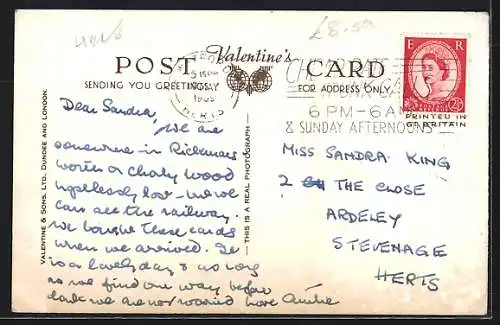 Herts
£8.50
POST Valentine's CARD
SENDING YOU GREETINGS FOR ADDRESS ONLY
E R
CHEAP RATE
6 PM-6 AM
& SUNDAY AFTERNOONS
HERTS
PRINTED IN
GT. BRITAIN
VALENTINE & SONS, LTD., DUNDEE AND LONDON.
THIS IS A REAL PHOTOGRAPH
Dear Sandra,
We are
somewhere in Rickmans
worth or Chorley Wood
hopelessly lost – but we
can see the railway.
We bought these cards
when we arrived. It
is a lovely day & as long
as we find our way before
dark we are not worried love
MISS SANDRA KING
2 THE CLOSE
ARDELEY
STEVENAGE
HERTS